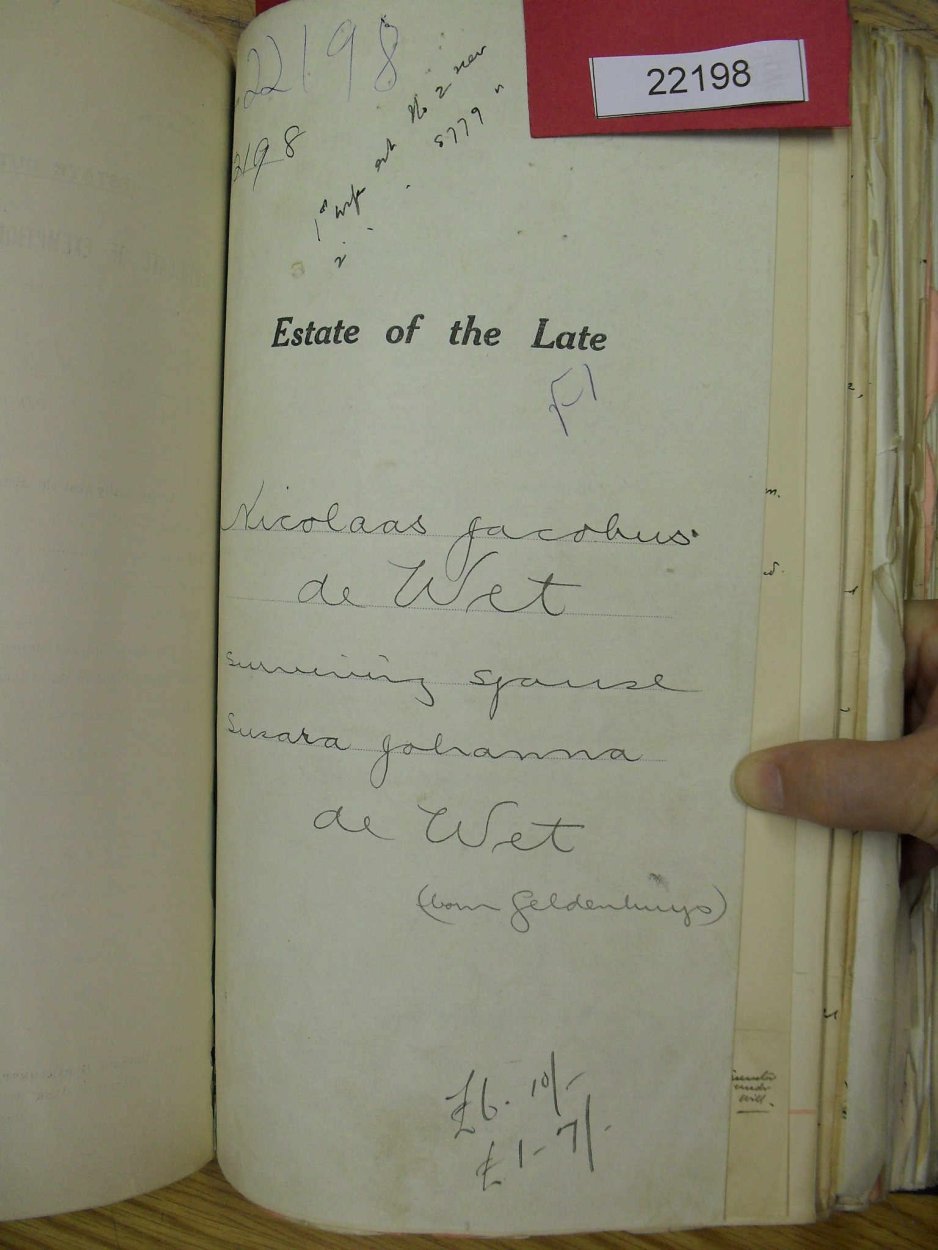 22198
22198
2198
1st wife est No 2 new
2 . . 5779 "
Estate of the Late
Nicolaas Jacobus
de Wet
surviving spouse
Susara Johanna
de Wet
(born Geldenhuys)
£6. 10/-
£1-7/-
will.